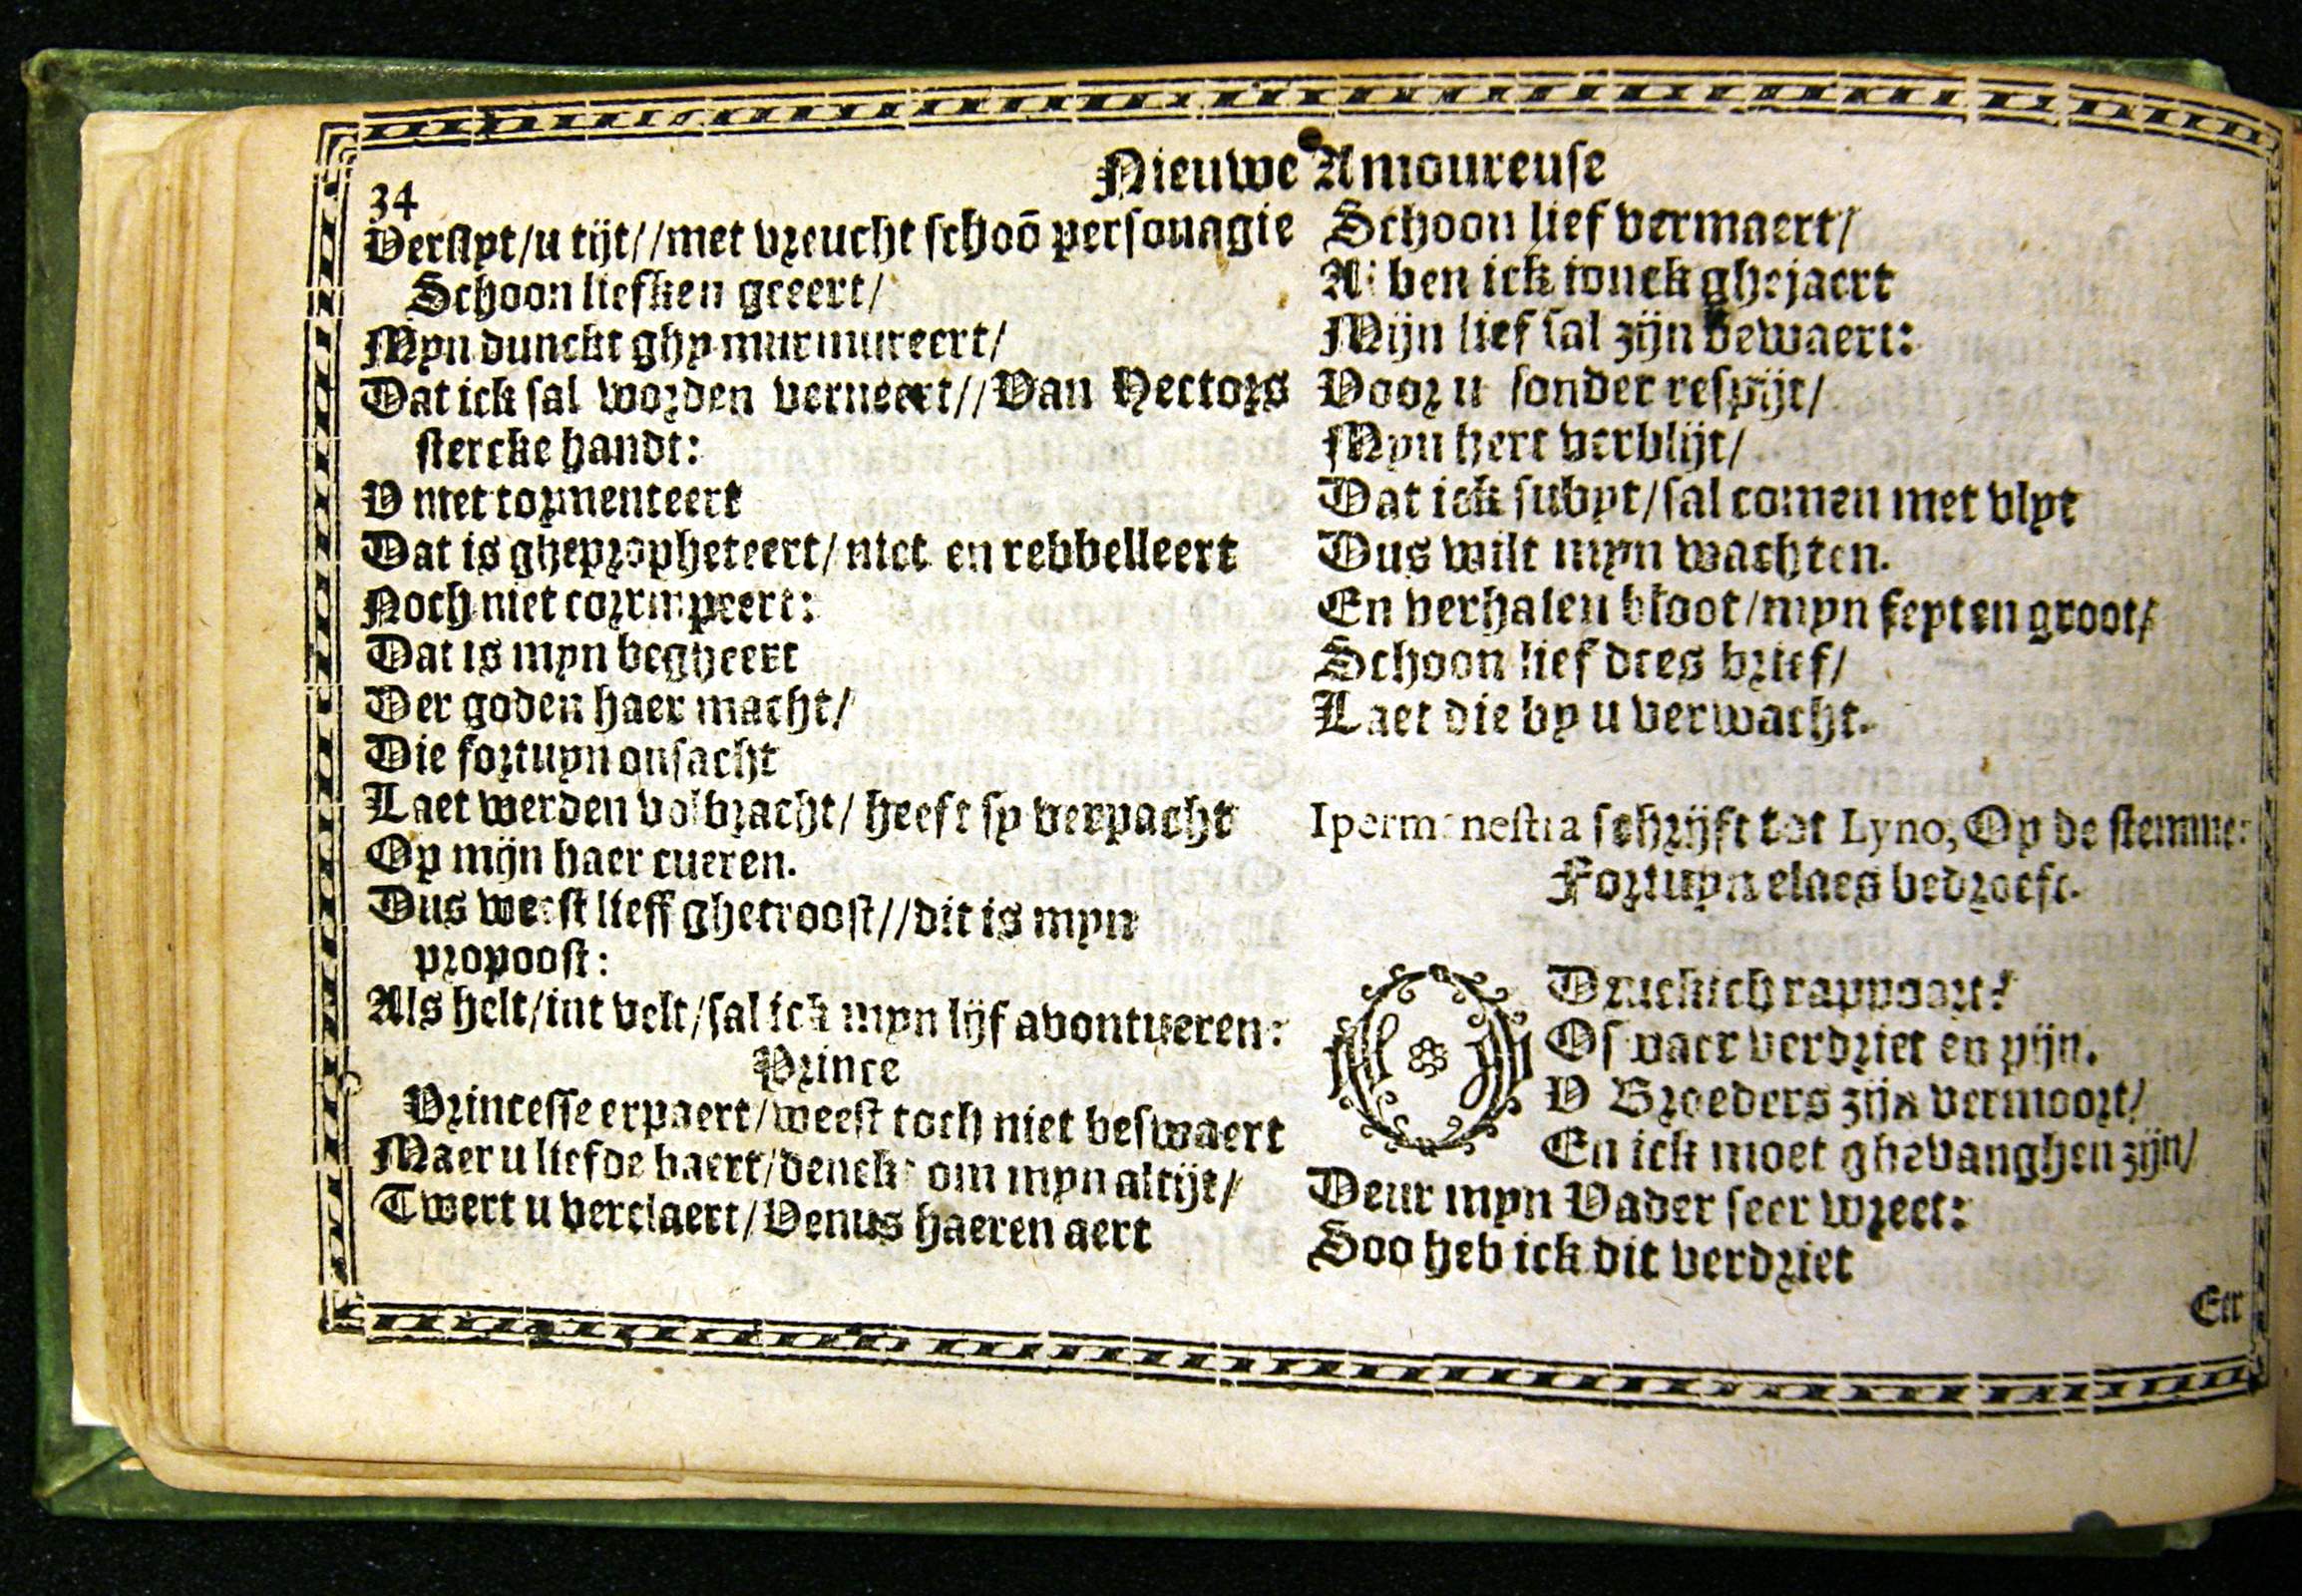 34
Nieuwe Amoureuse
Verslyt/u tijt//met vreucht schoō personagie
Schoon liefken geeert/
Myn dunckt ghy murmureert/
Dat ick sal worden verneert//Van Hectors
stercke handt:
V niet tormenteert
Dat is ghepropheteert/niet en rebbelleert
Noch niet corrumpeert:
Dat is myn begheert
Der goden haer macht/
Die fortuyn onsacht
Laet werden volbracht/heeft sy verpacht
Op mijn haer cueren.
Dus weest lieff ghetroost//dit is myn
propoost:
Als helt/int velt/sal ick myn lijf avontueren:
Prince
Princesse erpaert/weest toch niet beswaert
Maer u liefde baert/denckt om myn altijt/
Twert u verclaert/Venus haeren aert
Schoon lief vermaert/
Al ben ick ionck ghejaert
Mijn lief sal zijn bewaert:
Voor u sonder respijt/
Myn hert verblijt/
Dat ick subyt/sal comen met vlyt
Dus wilt myn wachten.
En verhalen bloot/myn feyten groot/
Schoon lief dees brief/
Laet die by u verwacht.
Ipermenestra schrijft tot Lyno, Op de stemme:
Fortuyn elaes bedroeft.
O Druckich rappoort!
Of vaer verdriet en pijn.
V Broeders zijn vermoort/
En ick moet ghevanghen zijn/
Deur myn Vader seer wreet:
Soo heb ick dit verdriet